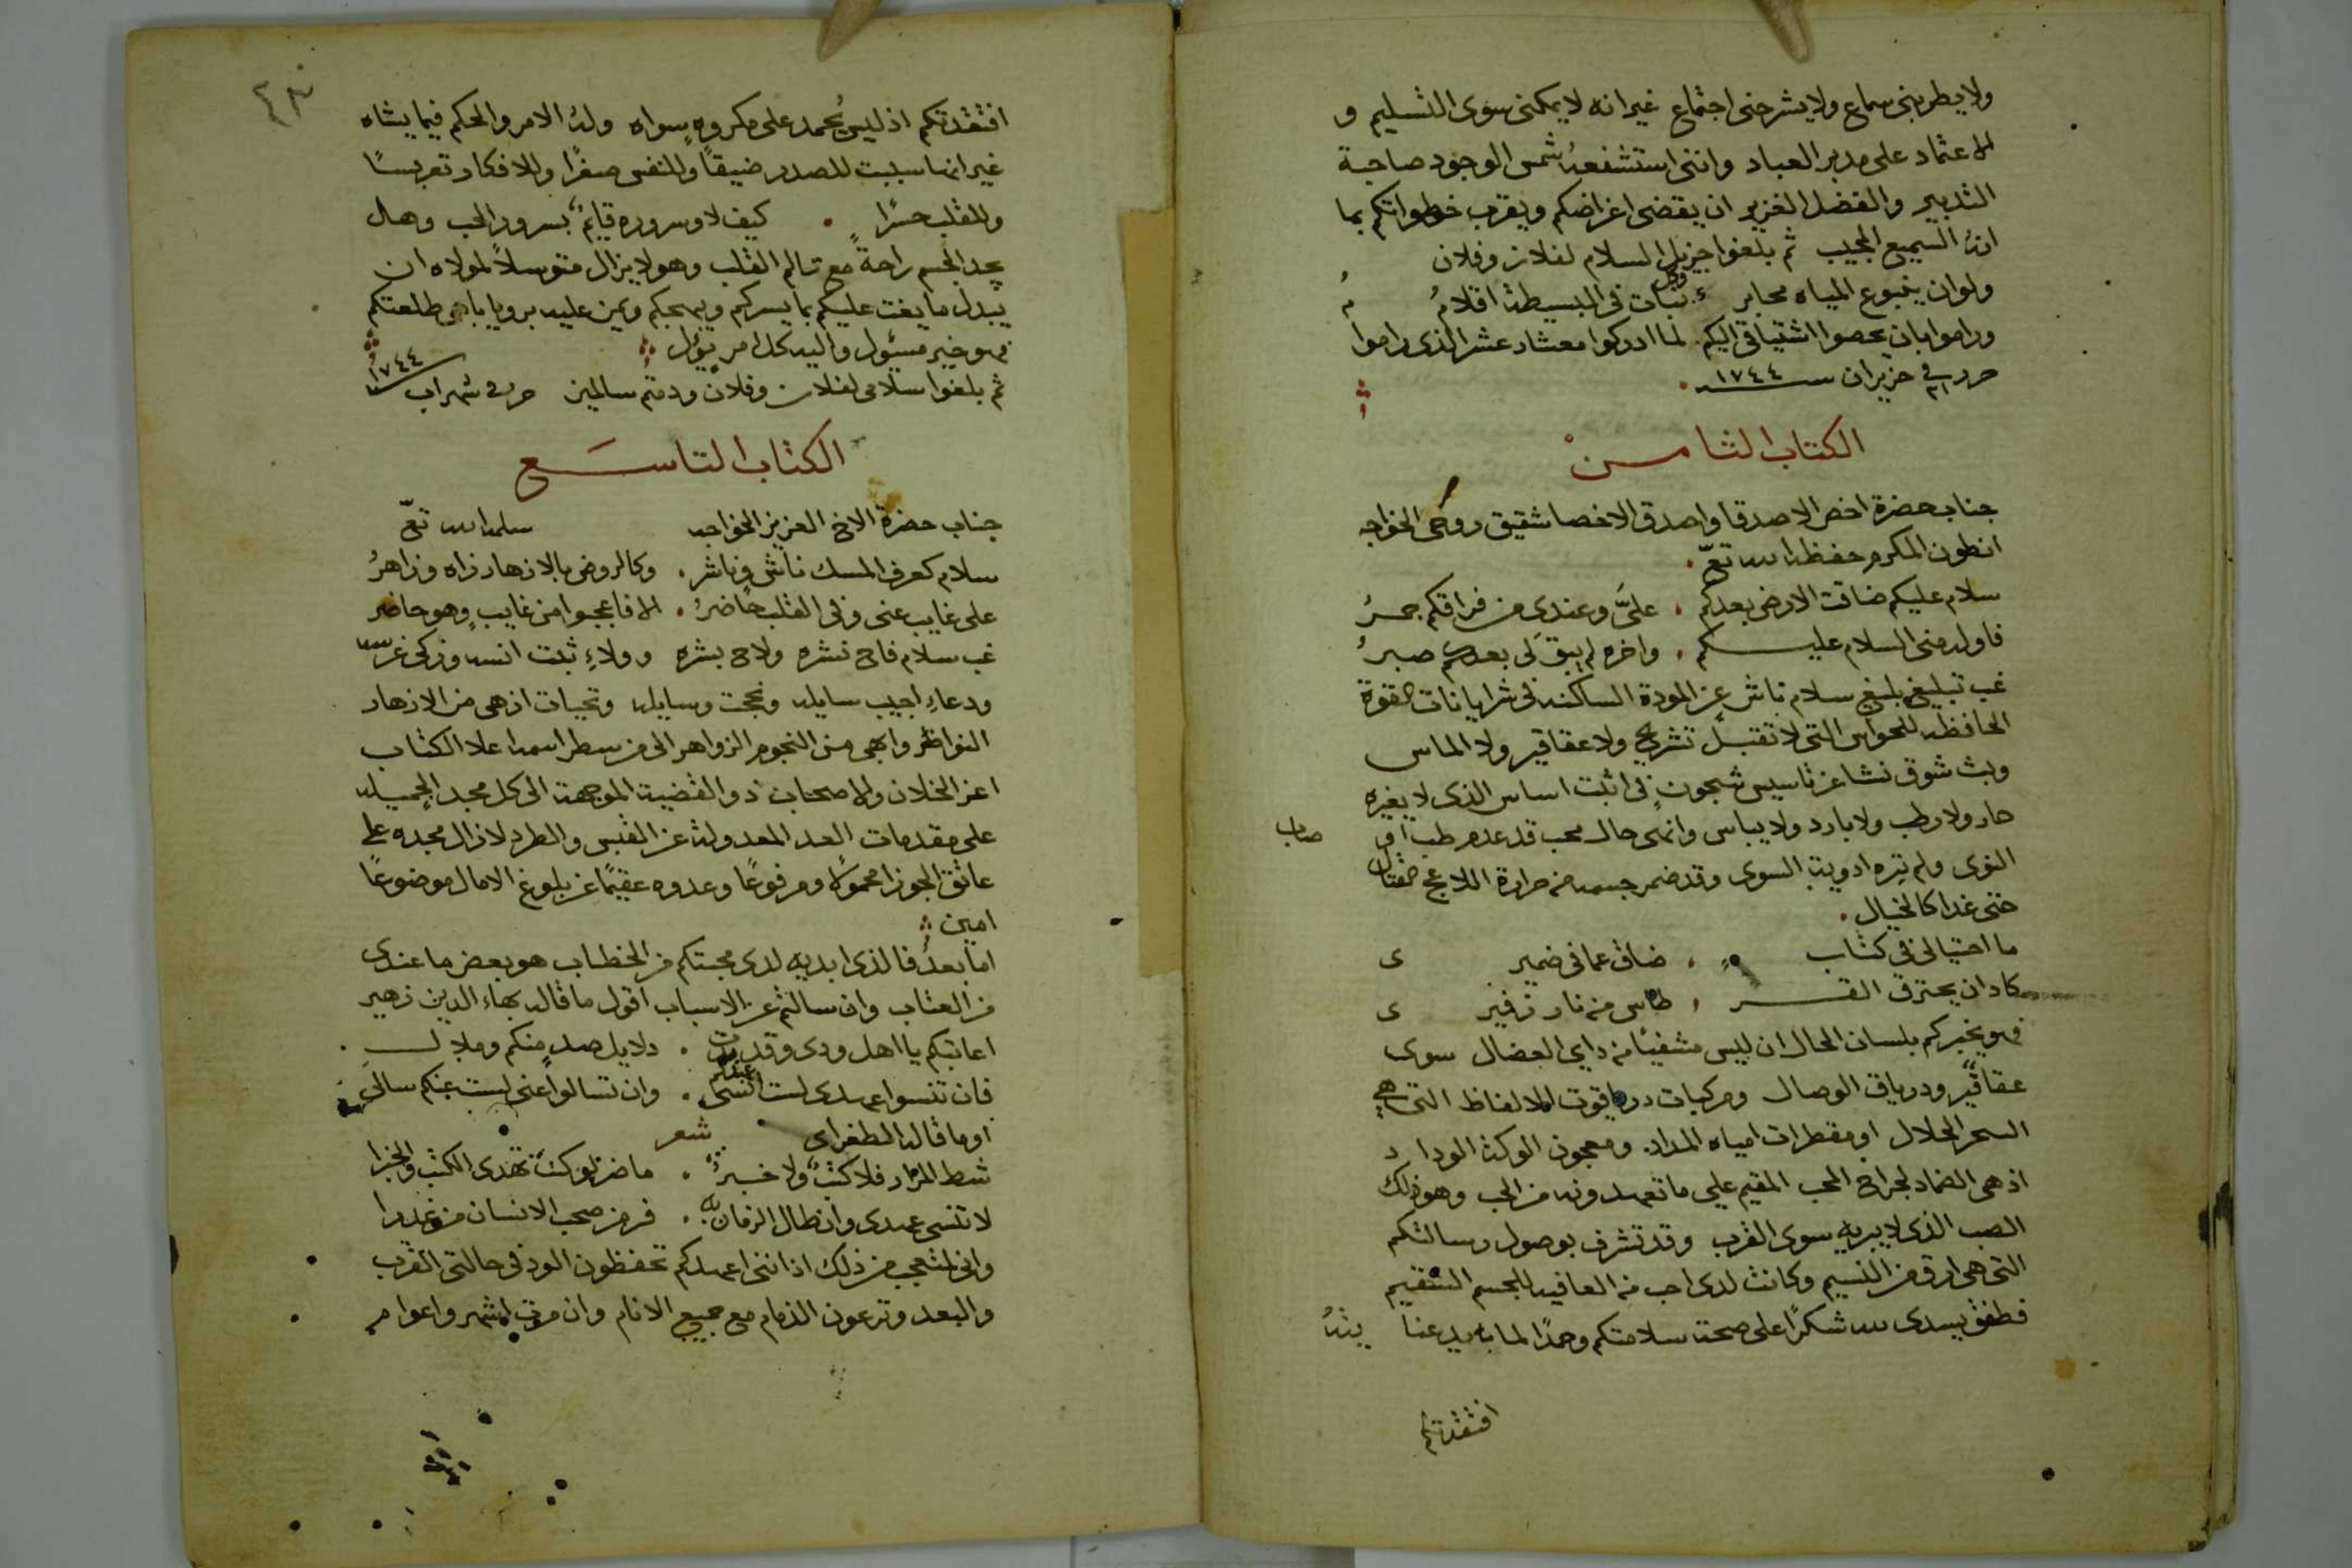 ولا يطربنى سماع ولا يشرحنى اجتماع غير انه لا يمكنى سوى التسليم و
الاعتماد على مدبر العباد واننى استشفعه شمس الوجود صاحبة
التدبير والفضل الغزير ان يقضى اغراضكم ويقرب خطواتكم بما
انه السميع المجيب ثم بلغوا جزيل السلام لفلان وفلان
ولو ان ينبوع المياه محابر وكل نبات فى البسيطة اقلام
وراموا بان يحصوا اشتياقى اليكم لما ادركوا معشار عشر الذى راموا
حرر فى حزيران سنه ١٧٤٤
الكتاب الثامن
جناب حضرة اخص الاصدقا واصدق الاخصا شقيق روحى الخواجه
انطون المكرم حفظه الله تع
سلام عليكم ضاقت الارض بعدكم علىَّ وعندى من فراقكم جمرُ
فاوله منى السلام عليكم واخره لم يبقَ لى بعدكم صبرُ
غب تبليغ بليغ سلام ناشر عن المودة الساكنه فى شرايانات القوة
الحافظه للحواس التى لا تقبل تشريح ولا عقاقير ولا الماس
وبث شوق نشا عن تاسيس شجون فى اثبت اساس الذى لا يغيره
حار ولا رطب ولا بارد ولا يباس وانهى حال محب قد عدم طب
النوى ولم تبره ادوية السوى وقد ضمر جسمه من حرارة اللاعج
حتى غدا كالخيال
ما احتيالى فى كتاب ضاق عما فى ضميرى
كاد ان يحترق القرطاس من نار زفيرى
فهو يخبركم بلسان الحال ان ليس مشفيًا من دايى العضال سوى
عقاقير ودرياق الوصال ومركبات در ياقوت الالفاظ التى هى
السحر الحلال او مقطرات امياه المداد ومعجون الوكة الوداد
اذ هى الضماد لجراح المحب المقيم على ما تعهدونه من الحب وهو ذلك
الصب الذى لا يبريه سوى القرب وقد تشرف بوصول رسالتكم
التى هى ارق من النسيم وكانت لدى احب من العافيه للجسم السقيم
فطفق يسدى لله شكرًا على صحة سلامتكم وحمدًا لما به
افتقدتكم
افتقدتكم اذ ليس يُحمد على مكروهٍ سواه وله الامر والحكم فيما يشاه
غير انها سببت للصدر ضيقًا وللنفس صغرًا وللافكار تعريسًا
وللقلب حسرًا كيف لا وسروره قايمٌ بسرور المحب وهل
يجد الجسم راحةً مع تالم القلب وهو لا يزال متوسلاً لمولاه ان
يبدل ما يغت عليكم بما يسركم ويبهجكم ويمن عليه برويا باهى طلعتكم
فهو خير مسئول واليه كل امر يؤل
ثم بلغوا سلامى لفلان وفلان ودمتم سالمين حرر فى شهر اب سنه ١٧٤٤
الكتاب التاسع
جناب حضرة الاخ العزيز الخواجه سلمه الله تع
سلام كعرف المسك ناشى وناشر وكالروض بالازهار زاه وزاهرُ
على غايب عنى وفى القلب حاضرُ الا فاعجبوا من غايبٍ وهو حاضر
غب سلام فاح نشره ولاح بشره وولاءِ ثبت انسه وزكى غرسه
ودعاءِ اجيب سايله ونجحت وسايله وتحيات ازهى من الازهار
النواظر وابهى من النجوم الزواهر الى من سطر اسمه اعلا الكتاب
اعز الخلان والاصحاب ذو القضية الموجهة الى كل مجد الجميله
على مقدمات العد المعدولة عن العكس والطرد لا زال مجده على
عاتق الجوزا محمولا ومرفوعًا وعدوه عقيمًا عن بلوغ الامال موضوعًا
امين
اما بعدُ فالذى ابديه لدى محبتكم من الخطاب هو بعض ما عندى
من العتاب وان سالتم عن الاسباب اقول ما قاله بهاء الدين زهير
اعاتبكم يا اهل ودى وقد بدت دلايل صدٍ منكم وملال
فان تنسوا عهدى لست انسى عهدكم وان تسالوا عنى لست عنكم سالى
او ما قاله الطغراى شعر
شط المزار فلا كتبٌ ولا خبرٌ ما ضر لو كنت تهدى الكتب والخبرا
لا تنسى عهدى وان طال الزمان به فرمز صحب الانسان من غدرا
وانى لمتعجب من ذلك اذ اننى اعهدكم تحفظون الود فى حالتى القرب
والبعد وترعون الذمام مع جميع الانام وان مرت اشهر واعوام